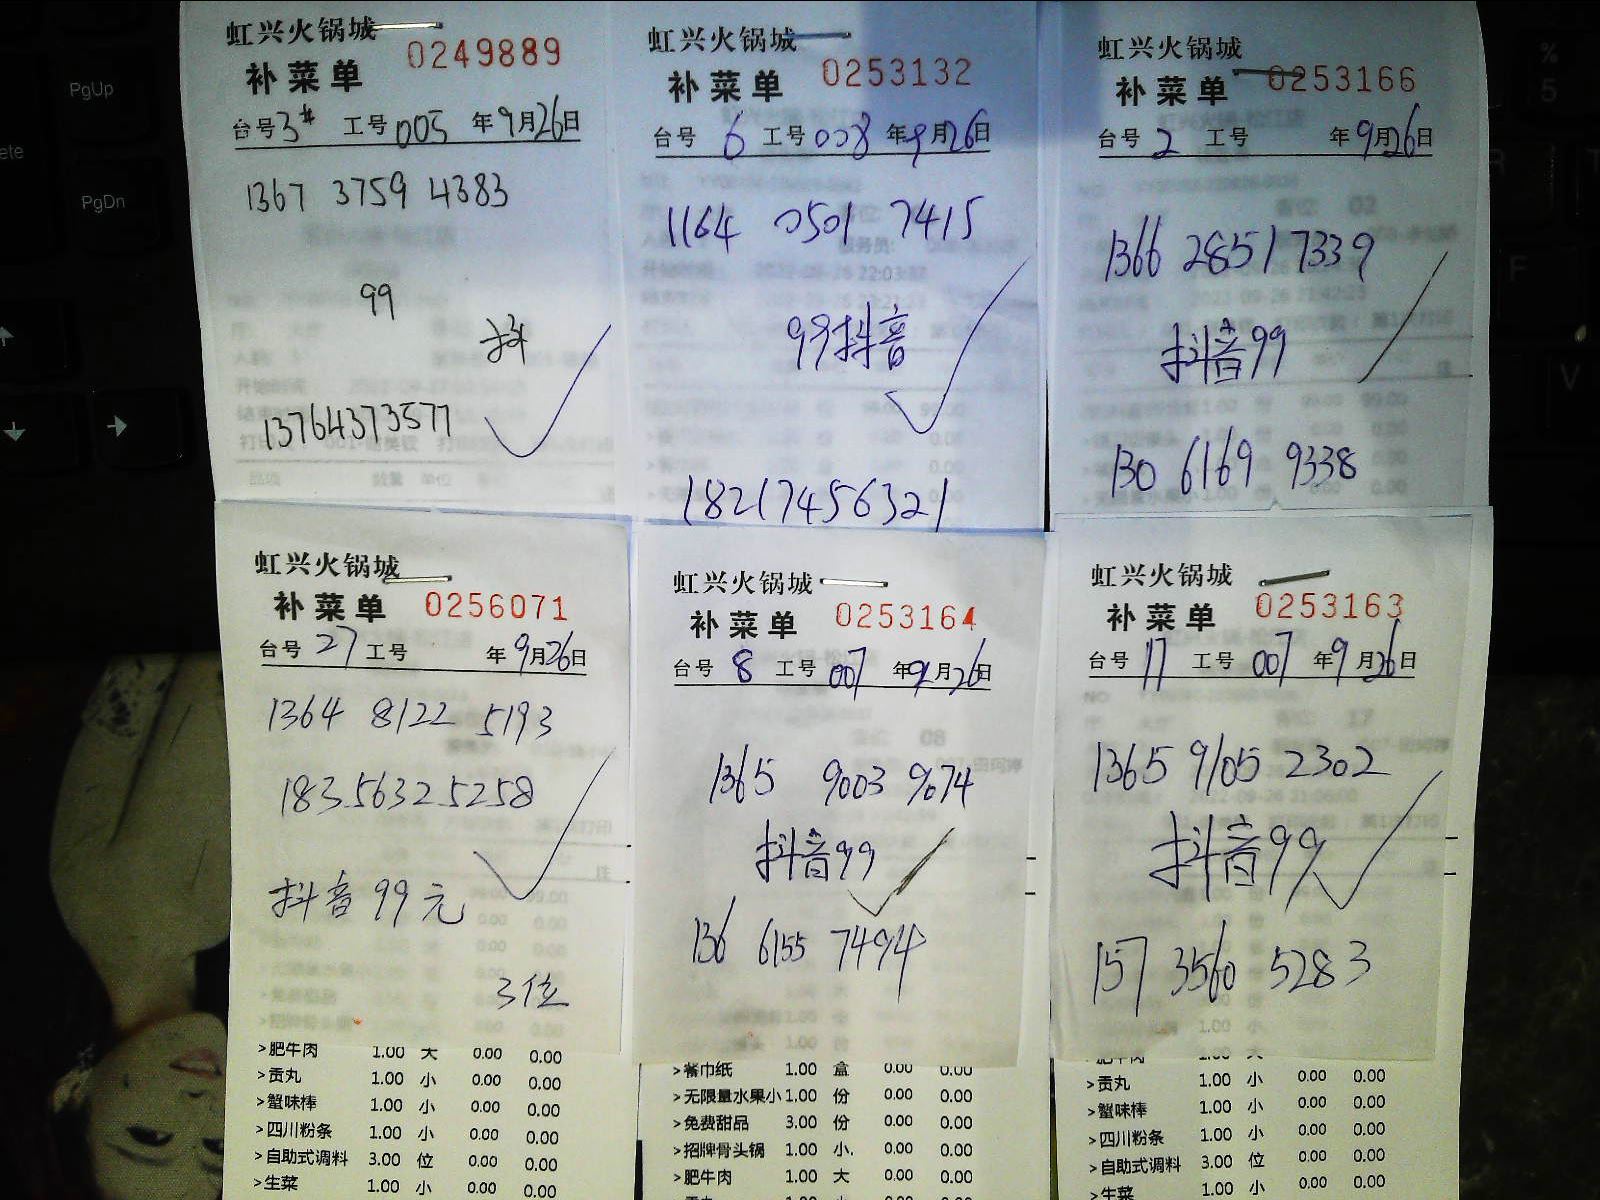 虹兴火锅城
补菜单 0249889
台号 3# 工号 005 年 9月26日
1367 3759 4383
99
抖
13764373577
虹兴火锅城
补菜单 0253132
台号 6 工号 008 年 9月26日
1164 0501 7415
99抖音
18217456321
虹兴火锅城
补菜单 0253166
台号 2 工号 年 9月26日
1366 2851 7339
抖音99
130 6169 9338
虹兴火锅城
补菜单 0256071
台号 27 工号 年 9月26日
1364 8122 5193
18356325258
抖音 99元
3位
>肥牛肉 1.00 大 0.00 0.00
>贡丸 1.00 小 0.00 0.00
>蟹味棒 1.00 小 0.00 0.00
>四川粉条 1.00 小 0.00 0.00
>自助式调料 3.00 位 0.00 0.00
>生菜 1.00 小 0.00 0.00
虹兴火锅城
补菜单 0253164
台号 8 工号 007 年 9月26日
1365 9003 9674
抖音99
136 6155 7494
>餐巾纸 1.00 盒 0.00 0.00
>无限量水果小 1.00 份 0.00 0.00
>免费甜品 3.00 份 0.00 0.00
>招牌骨头锅 1.00 小. 0.00 0.00
>肥牛肉 1.00 大 0.00 0.00
虹兴火锅城
补菜单 0253163
台号 17 工号 007 年 9月26日
1365 9105 2302
抖音99
157 3560 5283
>肥牛肉 1.00 大 0.00 0.00
>贡丸 1.00 小 0.00 0.00
>蟹味棒 1.00 小 0.00 0.00
>四川粉条 1.00 小 0.00 0.00
>自助式调料 3.00 位 0.00 0.00
>生菜 1.00 小 0.00 0.00
PgUp
PgDn